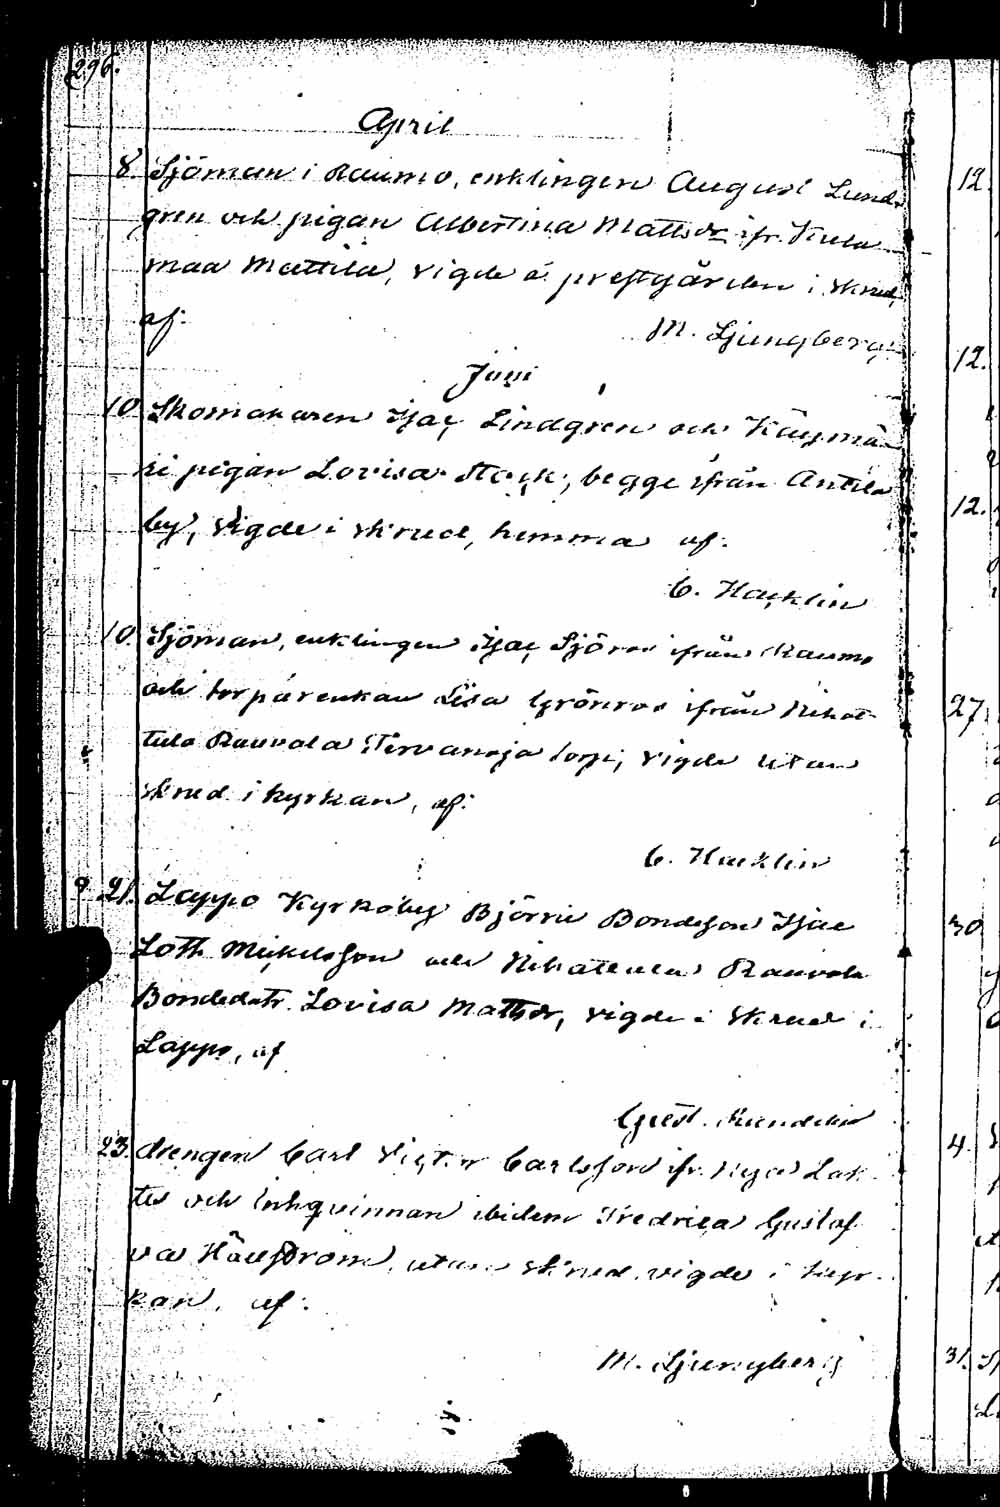 296.
April
8. Sjöman i Raumo, enklingen August Lund-
gren och pigan Albertina Mattsdr ifr. Kula
maa Mattila, vigde å prestgården i skrud,
af:
M. Ljungberg.
Juni
10 Skomakaren Isac Lindgren och Käymä-
ki pigan Lovisa begge ifrån Antila
by, vigde i skrud, hemma af:
C. Hacklin
10. Sjöman, enklingen Isac Sjöros ifrån Raumo
och torpårenkan Lisa Grönros ifrån Nihat-
tula Rauvola Tervanoja torp, vigde utan
skrud i kyrkan, af:
C. Hacklin
21. Lappo Kyrkoby Björni Bondeson Isac
Loth Mickelsson och Nihattula Rauvola
Bondedotr. Lovisa Mattsdr, vigde i skrud i
Lappo, af
Gust.
23. drengen Carl Victor Carlsson ifr.
och inhqvinnan ibidem Fredrica Gustaf
va utan skrud, vigde i kyr-
kan, af:
M. Ljungberg
12.
12.
12.
27.
30
4.
31.